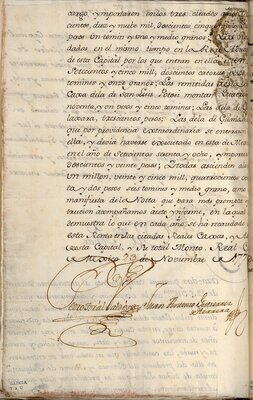 cargo, y importaron en los tres citados
cientos, diez y nueve mil, doscientos, cinq
pesos un tomin y uno y medio granos: Las
dadas en el mismo tiempo en la Real Aduana
de esta Capital por los que entran en ella
Setecientos y cinco mil, doscientos catorce pesos
tomines y onze granos: Las remitidas
Caxa dela de San Luis Potosi montan
noventa, y un pesos y cinco tomines; Las dela de
laxara, trescientos pesos; Las dela de
que por providencia extraordinaria se enteraron
ella, y devia haverse executado en esta de Mexico
en el año de Setecientos setenta y ocho, y importaron
doscientos y veinte pesos; Y todas ascienden
un millon, veinte y cinco mil, quatrocientos
ta, y dos pesos seis tomines y medio grano, como
manifiesta de la Nota que para mas prompta
truccion acompañamos a este ynforme, en la qual
demuestra lo que en cada año se ha recaudado
esta Renta en las citadas Reales Caxas, y
questa Capital, y su total Monto. Real
de Mexico 29 de Noviembre de 177
Pedro Toral Valdes Juan Antonio Gutierrez
de Herrera